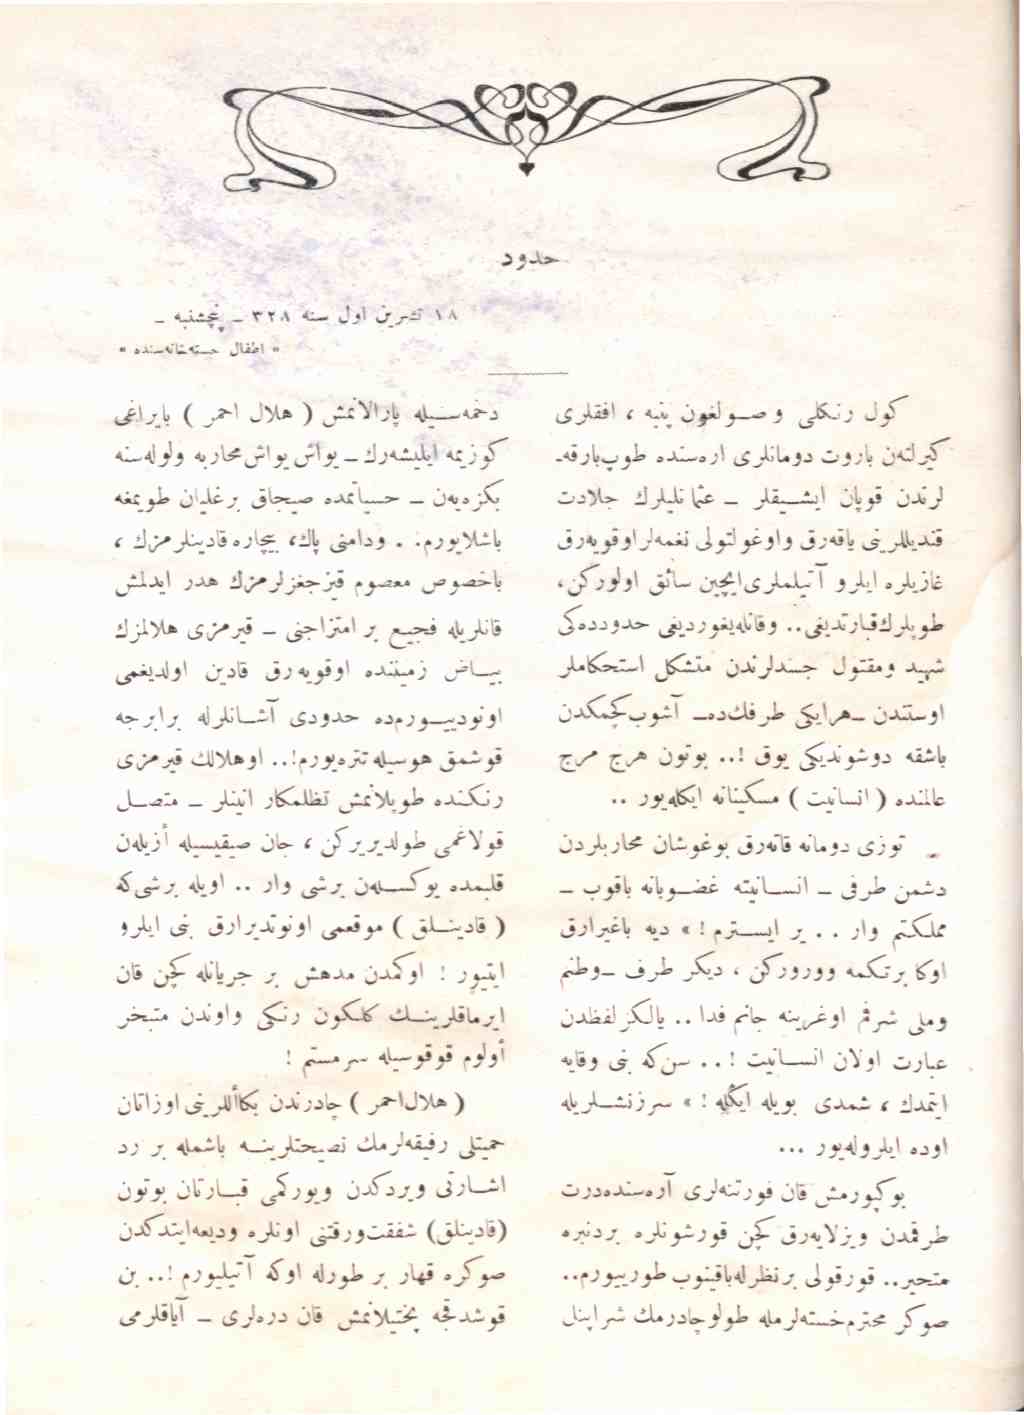 حدود
١٨ تشرین اول سنه ٣٢٨ ـ پنچشنبه ـ
« اطفال خسته‌خانه‌سنده »
كول رنكلی و صـولغون پنبه ، افقلری
كیرلتەن باروت دومانلری اره‌سنده طوپ‌بارقه‌ـ
لرندن قوپان ایشـیقلر ـ عثمانلیلرك جلادت
قندیللرینی یاقه‌رق واوغولتولی نغمه‌لراوقویه‌رق
غازیلره ایلرو آتیلملری‌ایچین سائق اولوركن،
طوپلرك‌قبارتدیغی.. وقانله‌یغوردیغی حدودده‌كی
شهید ومقتول جسدلرندن متشكل استحكاملر
اوستندن ـ‌هرایكی طرفك‌ده‌ـ آشوب‌كچمكدن
باشقه دوشوندیكی یوق !.. بوتون هرج مرج
عالمنده ( انسانیت ) مسكینانه ایكله‌یور ..
توزی دومانه قاته‌رق بوغوشان محاربلردن
دشمن طرفی ـ انسـانیته غضـوبانه باقوب ـ
مملكتم وار . . یر ایسـترم ! » دیه باغیرارق
اوكا برتكمه وورركن ، دیكر طرف ـ‌وطنم
وملی شرفم اوغرینه جانم فدا .. یالكز لفظدن
عبارت اولان انسـانیت ! .. سن‌كه بنی وقایه
ایتمدك ، شمدی بویله ایكله ! » سرزنشـلریله
اوده ایلروله‌یور ...
بوكپورمش قان فورتنه‌لری آره‌سنده‌درت
طرفمدن ویزلایه‌رق كچن قورشونلره بردنبره
متحیر.. قورقولی برنظرله‌باقینوب طورییورم..
صوكر محترم‌خسته‌لرمله طولوچادرمك شراپنل
دخمه‌سـیله پارالانمش ( هلال احمر ) بایراغی
كوزیمه ایلیشه‌رك ـ یواش یواش محاربه ولوله‌سنه
بكزه‌یەن ـ حسیاتمده صیجاق برغلیان طویمغه
باشلایورم.. . ودامنی پاك، بیچاره قادینلرمزك ،
باخصوص معصوم قیزجغزلرمزك هدر ایدلمش
قانلریله فجیـع بر امتزاجنی ـ قیرمزی هلالمزك
بیـاض زمیننده اوقویه‌رق قادین اولدیغمی
اونودیـورم‌ده حدودی آشـانلرله برابرجه
قوشمق هوسیله تتره‌یورم!.. اوهلالك قیرمزی
رنكنده طوپلانمش تظلمكار انینلر ـ متصـل
قولاغمی طولدیریركن ، جان صیقیسیله أزیلەن
قلبمده یوكسـلەن برشی وار .. اویله برشی‌كه
( قادینـلق ) موقعمی اونوتدیرارق بنی ایلرو
ایتیور ! اوكمدن مدهش بر جریانله كچن قان
ایرماقلرینـك كلكون رنكی واوندن متبخر
أولوم قوقوسیله سرمستم !
( هلال‌احمر ) چادرندن بكاأللرینی اوزاتان
حمیتلی رفیقه‌لرمك نصیحتلرینـه باشمله بر رد
اشـارتی ویردكدن ویوركمی قبـارتان بوتون
(قادینلق) شفقت‌ورقتنی اونلره ودیعه‌ایتدكدن
صوكره قهار بر طورله اوكه آتیلیورم !.. بن
قوشدقجه پختیلانمش قان دره‌لری ـ آیاقلرمی